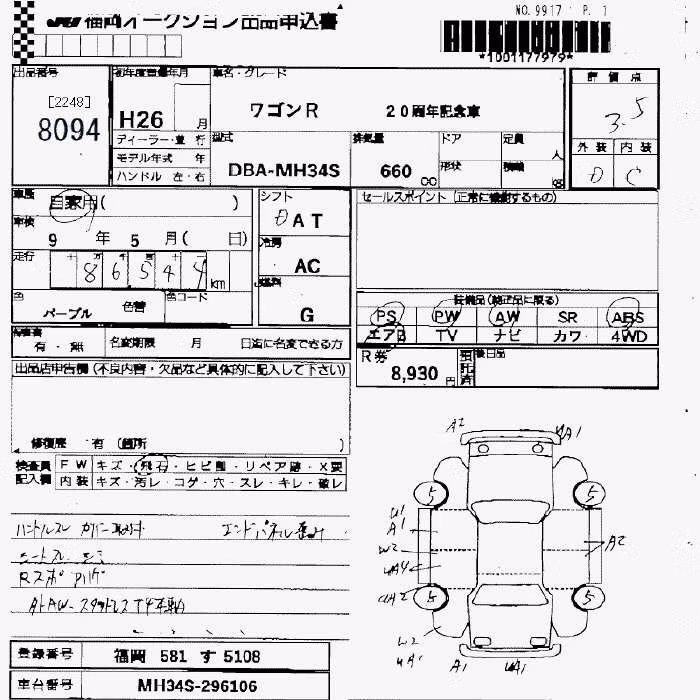 福岡オークション出品申込書
NO.9917 P. 1
*1001177979*
出品番号
[2248]
8094
初年度登録年月
H26 月
ディーラー・並行
モデル年式 年
ハンドル 左・右
車名・グレード
ワゴンR 20周年記念車
型式
DBA-MH34S
排気量
660 CC
ドア
形状
定員
人
積載
kg
評価点
3.5
外装 内装
D C
車歴
自家用( )
車検
9 年 5 月( 日)
走行
86544 km
色
パープル 色替
色コード
シフト
DAT
冷房
AC
燃料
G
セールスポイント (正常に機能するもの)
装備品(純正品に限る)
PS PW AW SR ABS
エアB TV ナビ カワ 4WD
R券
8,930 円
後日品
有・無
名変期限 月 日迄に名変できる方
出品店申告欄(不良内容・欠品など具体的に記入して下さい)
修復歴 有 (箇所 )
検査員
記入欄
FW キズ・飛石・ヒビ割・リペア跡・X要
内装 キズ・汚レ・コゲ・穴・スレ・キレ・破レ
ハンドルスレ カバー取付 エンドパネル歪み
A2
UA1
5
5
U1
A1
U2
UA4
UA2
A2
5
5
U2
UA1
A1
UA1
登録番号
福岡 581 す 5108
車台番号
MH34S-296106